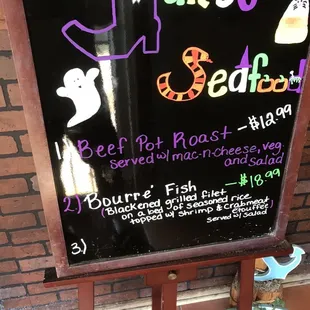 Seafood
1) Beef Pot Roast - $12.99
served w/ mac-n-cheese, veg.
and salad
2) Bourré Fish - $18.99
(Blackened grilled filet
on a bed of seasoned rice
topped w/ shrimp & crabmeat
etouffee)
served w/ salad
3)